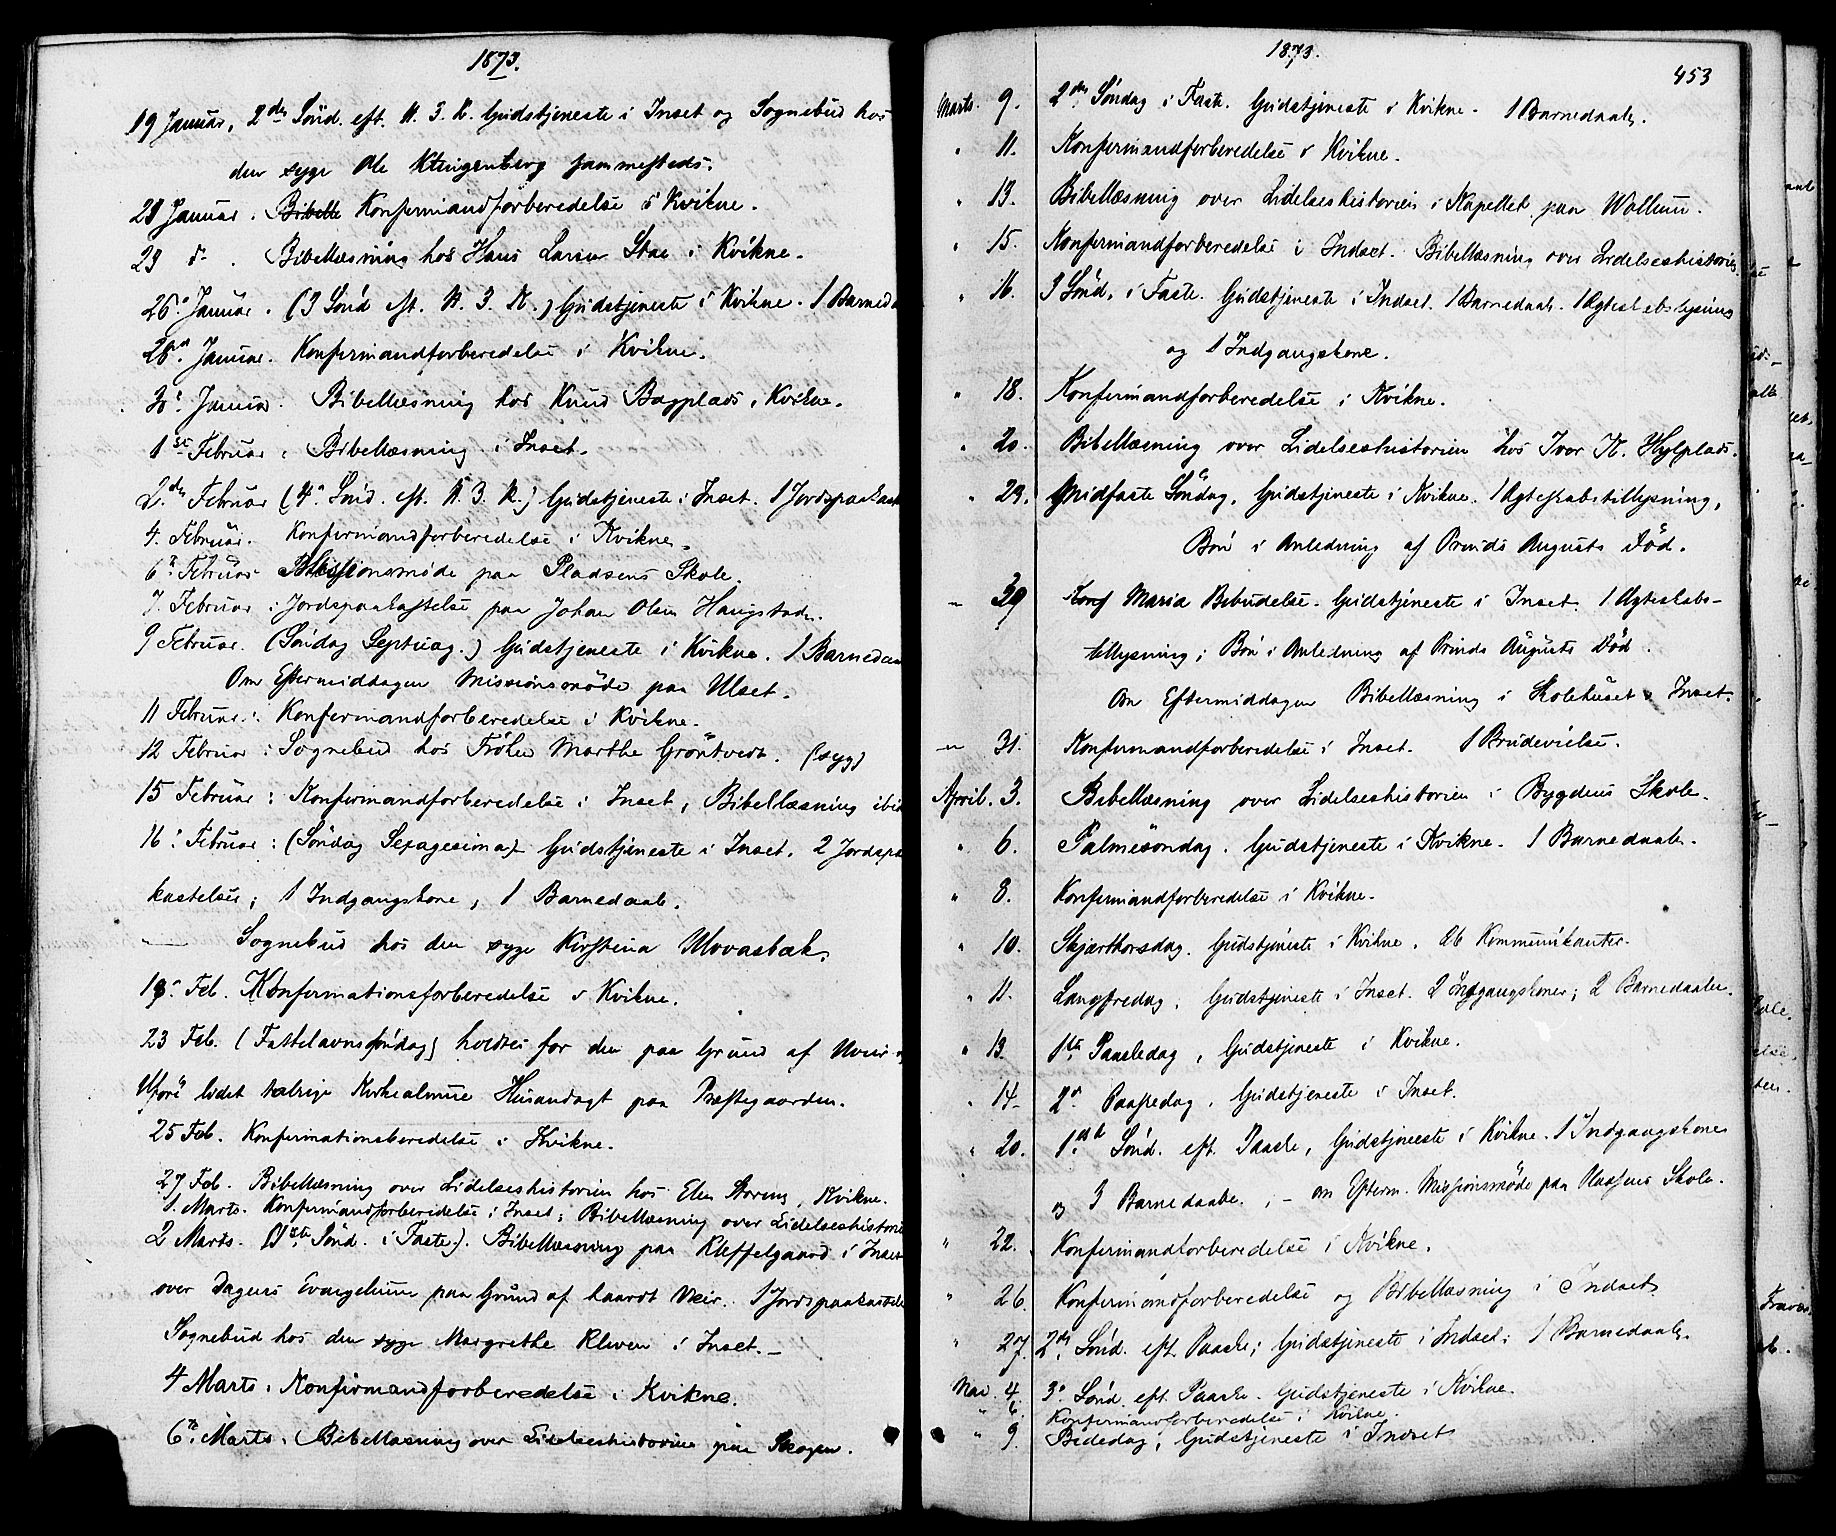 1873.
19 Januar, 2den Sönd. eft. H. 3. K. Gudstjeneste i Inset og Sognebud hos
den syge Ole Klingenberg sammesteds.
Januar. Bibelle Konfirmandforberedelse i Kvikne.
23 d. Bibellæsning hos Hans Larsen Stae i Kvikne.
26. Januar. (3 Sönd eft. H. 3. K.) Gudstjeneste i Kvikne. 1 Barned
28. Januar. Konfirmandforberedelse i Kvikne.
30. Januar. Bibellæsning hos Knud Bagplads, Kvikne.
1ste Februar, Bibellæsning i Inset.
2den Februar (4. Sönd. eft. H. 3. K.) Gudstjeneste i Inset. 1 Jordspaakast
4. Februar. Konfirmandforberedelse i Kvikne.
6. Februar Missionsmøde paa Pladsens Skole.
7. Februar: Jordspaakastelse paa Johan Olsen Haugstad.
9 Februar. (Söndag Septuag.) Gudstjeneste i Kvikne. 1 Barnedaa
Om Eftermiddagen Missionsmöde paa Ulset.
11 Februar: Konfirmandforberedelse i Kvikne.
12 Februar: Sognebud hos Fröken Marthe Gröntvedt. (syg)
15 Februar: Konfirmandforberedelse i Inset, Bibellæsning ibid
16. Februar: (Söndag Sexagesima) Gudstjeneste i Inset. 2 Jordspa
kastelser; 1 Indgangskone, 1 Barnedaab.
Sognebud hos den syge Kirstina Ulvvasbæk.
Feb. Konfirmationsforberedelse i Kvikne.
23 Feb. (Fastelavnssöndag) holdtes for den paa Grund af Uveir
Uföre lidet talrige Kirkealmue Husandagt paa Præstegaarden.
25 Feb. Konfirmationsberedelse i Kvikne.
27 Feb. Bibellæsning over Lidelseshistorien hos Elen Storeng, Kvikne.
1. Marts. Konfirmandforberedelse i Inset; Bibellæsning over Lidelseshistorie
2 Marts. (1ste Sönd. i Faste). Bibellæsning paa Kleffelgaard i Inset
over Dagens Evangelium paa Grund af haardt Veir. 1 Jordspaakastelse
Sognebud hos den syge Margrethe Kleven i Inset.
4 Marts. Konfirmandforberedelse i Kvikne.
6te Marts. Bibellæsning over Lidelseshistorien paa Skogen.
1873.
453
Marts. 9. 2den Söndag i Faste. Gudstjeneste i Kvikne. 1 Barnedaab.
" 11. Konfirmandforberedelse i Kvikne.
" 13. Bibellæsning over Lidelseshistorien i Kapellet paa Wollum.
" 15. Konfirmandforberedelse i Indset. Bibellæsning over Lidelseshistorien
" 16. 3 Sönd. i Faste. Gudstjeneste i Indset. 1 Barnedaab. 1 Ægteskabslysning
og 1 Indgangskone.
" 18. Konfirmandforberedelse i Kvikne.
" 20. Bibellæsning over Lidelseshistorien hos Ivar K. Hylplads.
" 23. Midfaste Söndag. Gudstjeneste i Kvikne. 1 Ægteskabstillysning,
Bön i Anledning af Prinds Augusts Död.
Konf Maria Bebudelse. Gudstjeneste i Inset. 1 Ægteskabs-
tillysning; Bön i Anledning af Prinds Augusts Död.
Om Eftermiddagen Bibellæsning i Skolehuset i Inset.
" 31. Konfirmandforberedelse i Inset. 1 Brudevielse.
April. 3. Bibellæsning over Lidelseshistorien i Bygdens Skole.
" 6. Palmesöndag. Gudstjeneste i Kvikne. 1 Barnedaab.
" 8. Konfirmandforberedelse i Kvikne.
" 10. Skjærthorsdag. Gudstjeneste i Kvikne. 26 Kommunikanter.
" 11. Langfredag. Gudstjeneste i Inset. 2 Indgangskoner; 2 Barnedaaber.
" 13. 1ste Paaskedag, Gudstjeneste i Kvikne.
" 14. 2. Paaskedag. Gudstjeneste i Inset.
" 20. 1ste Sönd. eft. Paaske, Gudstjeneste i Kvikne. 1 Indgangskone
og 3 Barnedaabe. - Om Efterm. Missionsmöde paa Pladsens Skole.
" 22. Konfirmandforberedelse i Kvikne.
" 26. Konfirmandforberedelse og Bibellæsning i Indset
" 27. 2den Sönd. eft. Paaske; Gudstjeneste i Indset; 1 Barnedaab.
Mai. 4. 3. Sönd. eft. Paaske. Gudstjeneste i Kvikne.
" 6. Konfirmandforberedelse i Kvikne.
" 9. Bededag; Gudstjeneste i Indset